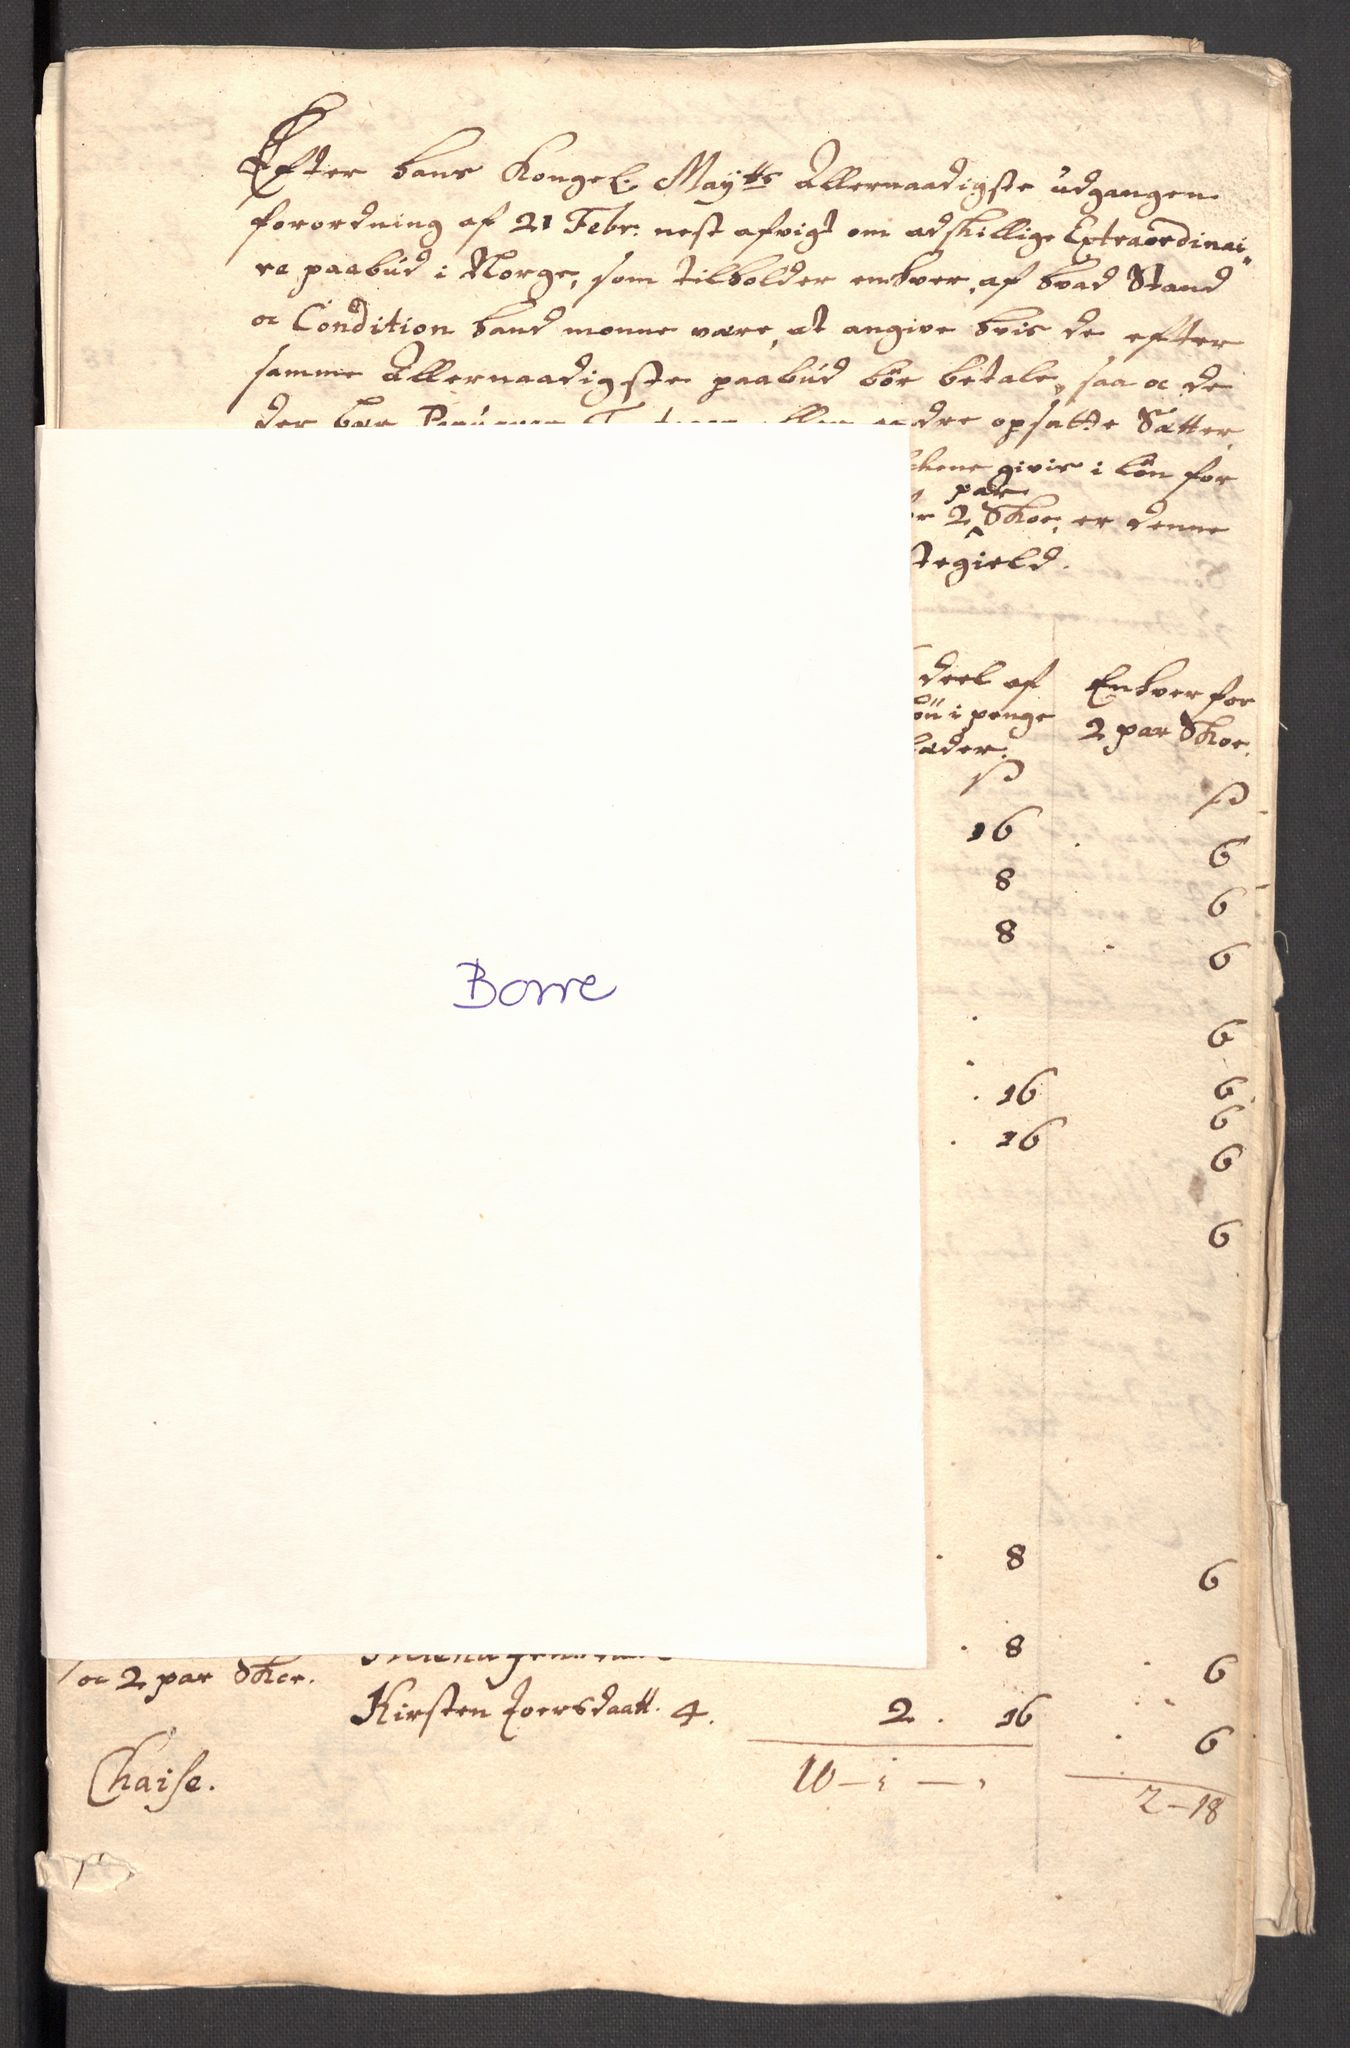 Efter hans Kongel. Maytts Allernaadigste udgangen
forordning af 21 Febr. nest afvigt om adskillige Extraordinai
re paabud i Norge, som tilholder enhver, af hvad Stand
oc Condition hand monne være, at angive hvis de efter
samme Allernaadigste paabud bör betale, saa oc de
der har andre opsatte Sætter
givis i lön for
par
2 Skoe, er denne
tegield.
deel af Enhver for
i penge 2 par Skoe.
ß ß
16 6
8 6
8 6
6
16 6
16 6
6
6
8 6
8 6
oc 2 par Skoe.
Kirsten Joersdaatt. 4. 2. 16 6
Chaise. 10 2-18
Borre